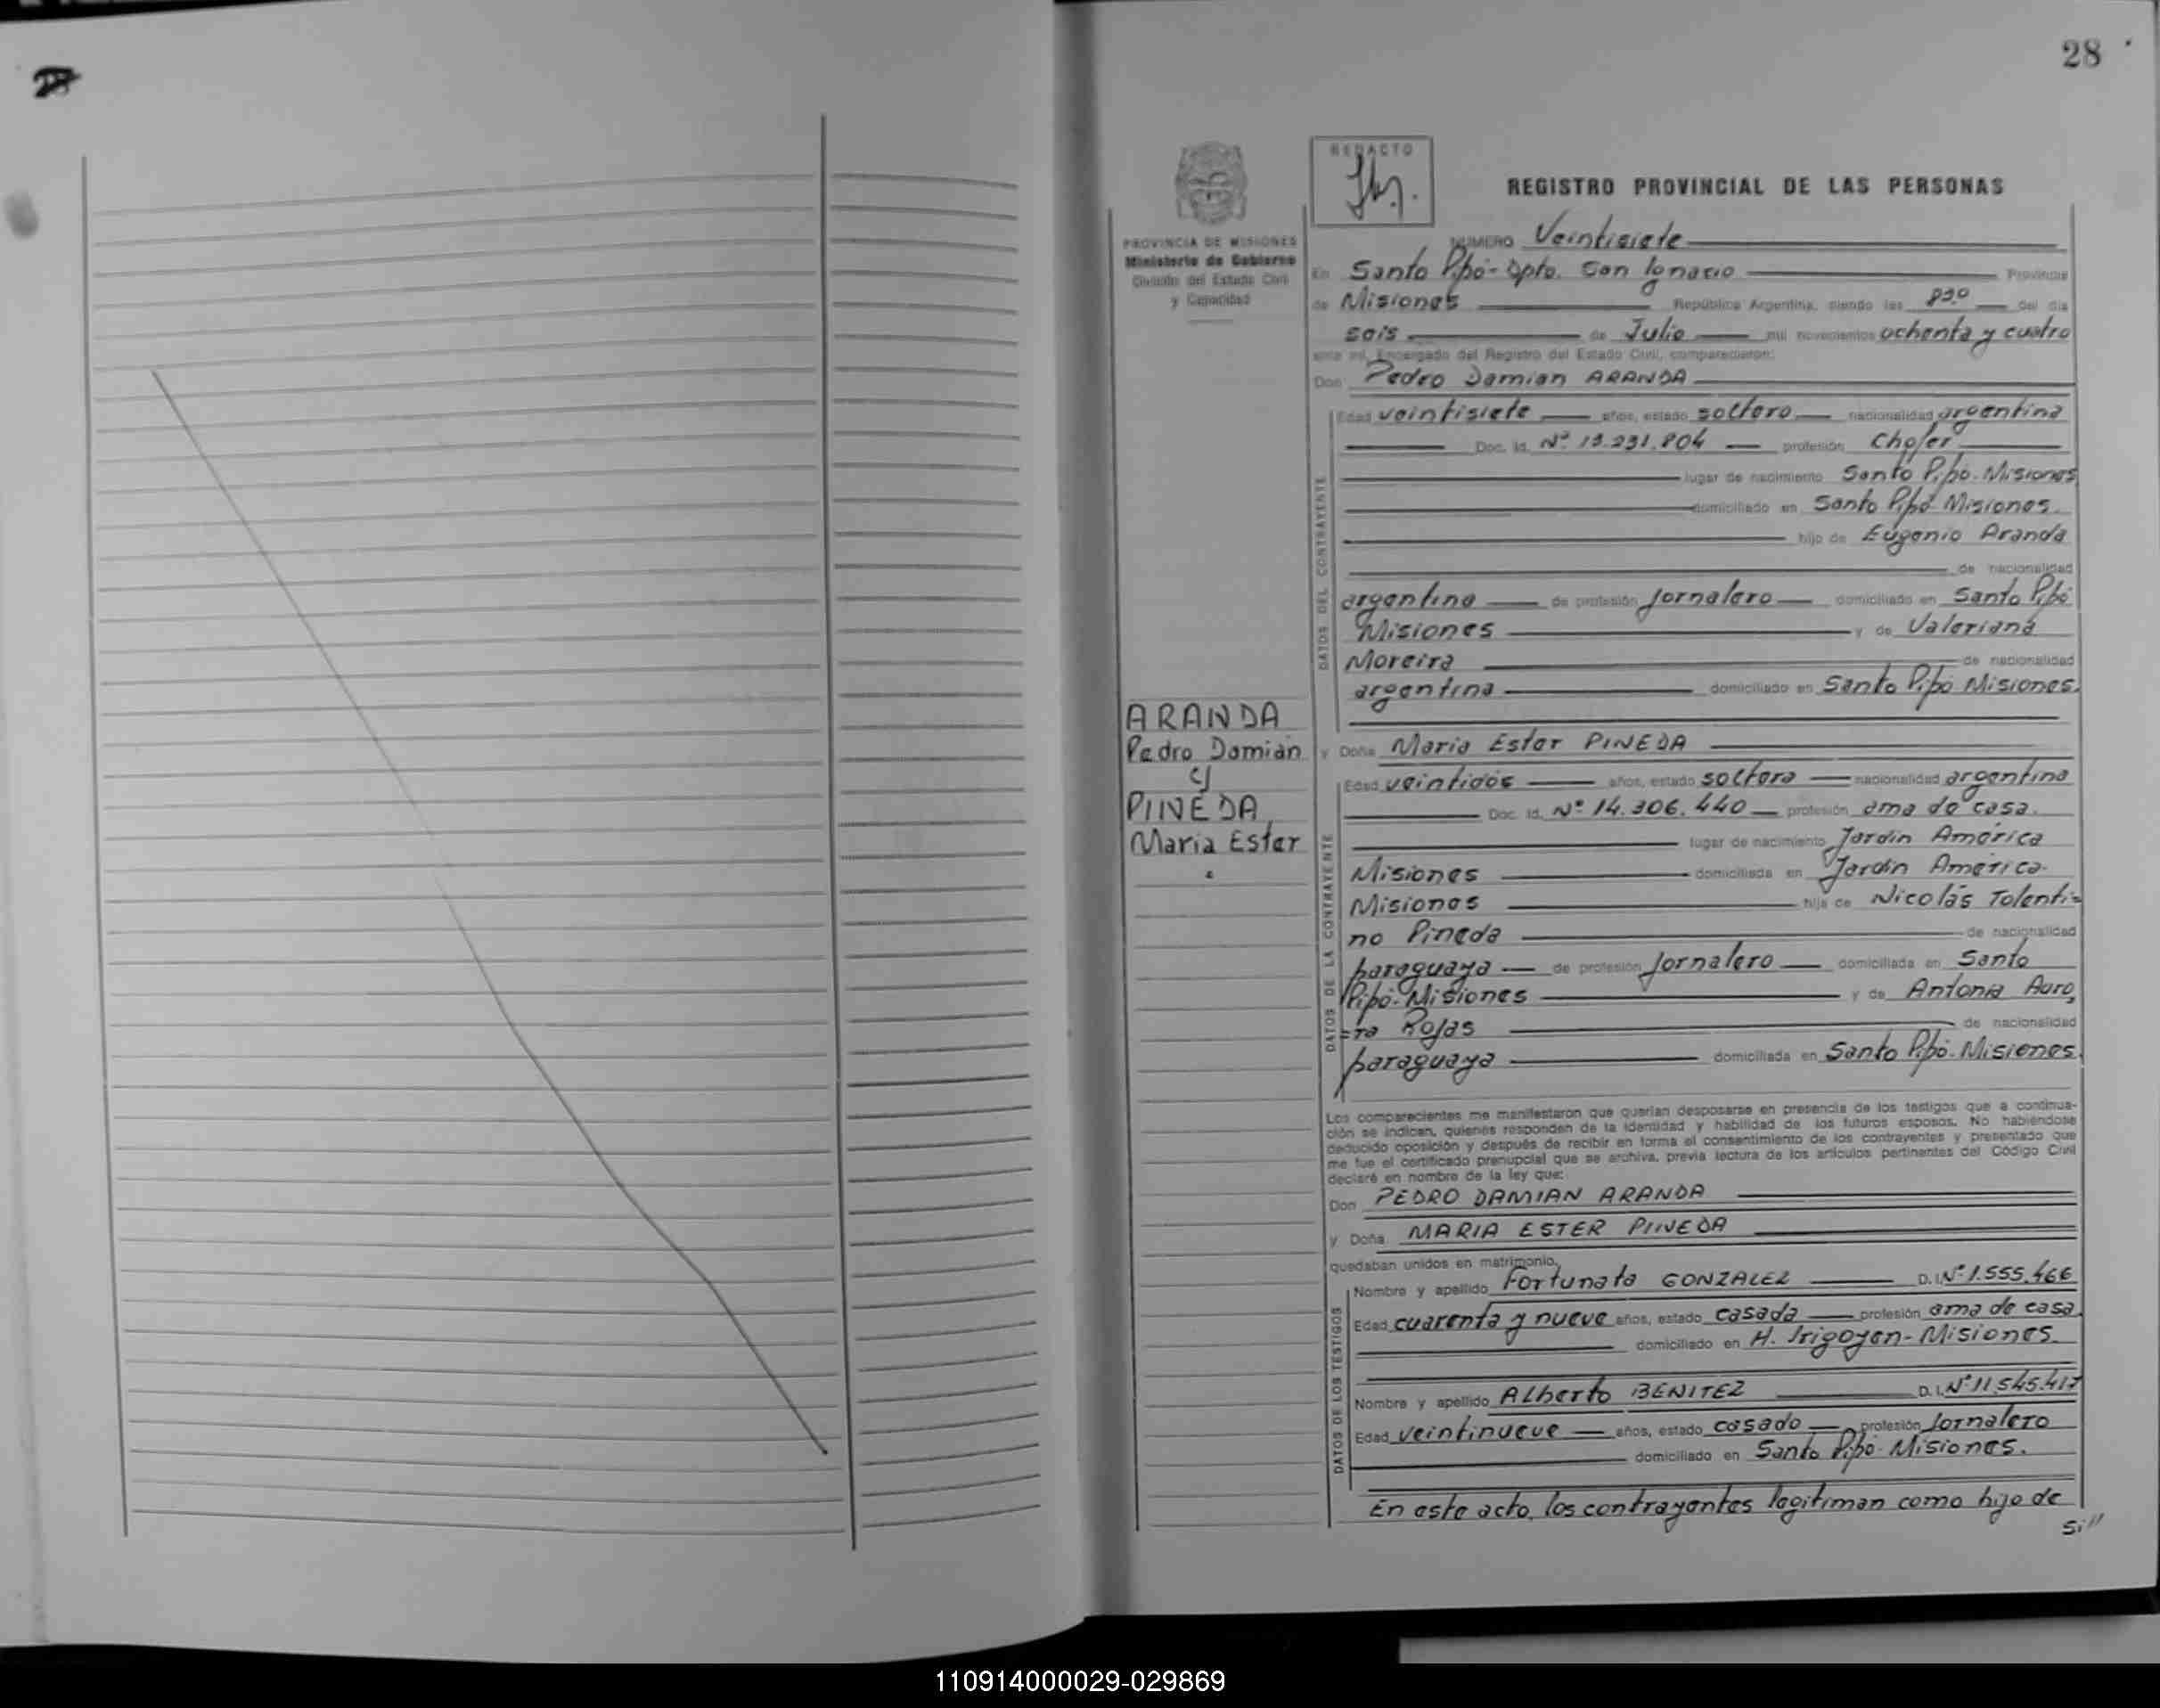 28
28
REDACTO
REGISTRO PROVINCIAL DE LAS PERSONAS
PROVINCIA DE MISIONES
Ministerio de Gobierno
División del Estado Civil
y Capacidad
NUMERO Veintisiete
En Santo Pipó - Dpto. San Ignacio Provincia
de Misiones República Argentina, siendo las 8,30 del día
seis de Julio mil novecientos ochenta y cuatro
ante mí, Encargado del Registro del Estado Civil, comparecieron:
Don Pedro Damian ARANDA
DATOS DEL CONTRAYENTE
Edad veintisiete años, estado soltero nacionalidad argentina
Doc. Id. Nº 13.231.804 profesión Chofer
lugar de nacimiento Santo Pipó - Misiones
domiciliado en Santo Pipó - Misiones.
hijo de Eugenio Aranda
de nacionalidad
argentina de profesión Jornalero domiciliado en Santo Pipó
Misiones y de Valeriana
Moreira de nacionalidad
argentina domiciliado en Santo Pipó Misiones.
ARANDA
Pedro Damián
c/
PINEDA
Maria Ester
y Doña Maria Ester PINEDA
DATOS DE LA CONTRAYENTE
Edad veintidós años, estado soltera nacionalidad argentina
Doc. Id. Nº 14.306.440 profesión ama de casa.
lugar de nacimiento Jardín América
Misiones domiciliada en Jardín América -
Misiones hija de Nicolás Tolenti=
no Pineda de nacionalidad
paraguaya de profesión Jornalero domiciliada en Santo
Pipó - Misiones y de Antonia Auro
=ra Rojas de nacionalidad
paraguaya domiciliada en Santo Pipó - Misiones.
Los comparecientes me manifestaron que querían desposarse en presencia de los testigos que a continua-
ción se indican, quienes responden de la identidad y habilidad de los futuros esposos. No habiéndose
deducido oposición y después de recibir en forma el consentimiento de los contrayentes y presentado que
me fue el certificado prenupcial que se archiva, previa lectura de los artículos pertinentes del Código Civil
declaré en nombre de la ley que:
Don PEDRO DAMIAN ARANDA
y Doña MARIA ESTER PINEDA
quedaban unidos en matrimonio.
DATOS DE LOS TESTIGOS
Nombre y apellido Fortunata GONZALEZ D.I. Nº 1.555.466
Edad cuarenta y nueve años, estado casada profesión ama de casa
domiciliado en H. Irigoyen - Misiones
Nombre y apellido Alberto BENITEZ D.I. Nº 11.545.417
Edad veintinueve años, estado casado profesión Jornalero
domiciliado en Santo Pipó - Misiones.
En este acto, los contrayentes legitiman como hijo de
si//
110914000029-029869